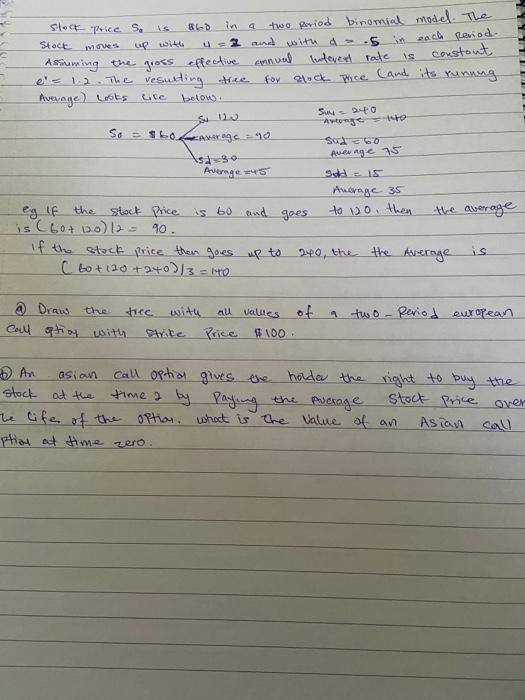 Stock Price So is $60 in a two period binomial model. The
Stock moves up with u = 2 and with d = .5 in each period.
Assuming the gross effective annual interest rate is constant
e^r = 1.2. The resulting tree for stock price (and its running
Average) looks like below.
Su 120
Suu = 240
Average = 140
So = $60
Average = 90
Sud = 60
Average 75
Sd = 30
Average = 45
Sdd = 15
Average 35
eg If the stock Price is 60 and goes to 120, then the average
is (60 + 120)/2 = 90.
If the stock price then goes up to 240, the the Average is
(60 + 120 + 240)/3 = 140
a) Draw the tree with all values of a two - Period european
Call option with strike Price $100.
b) An asian call option gives the holder the right to buy the
stock at the time 2 by Paying the Average Stock Price over
life of the option. what is the Value of an Asian call
ption at time zero.